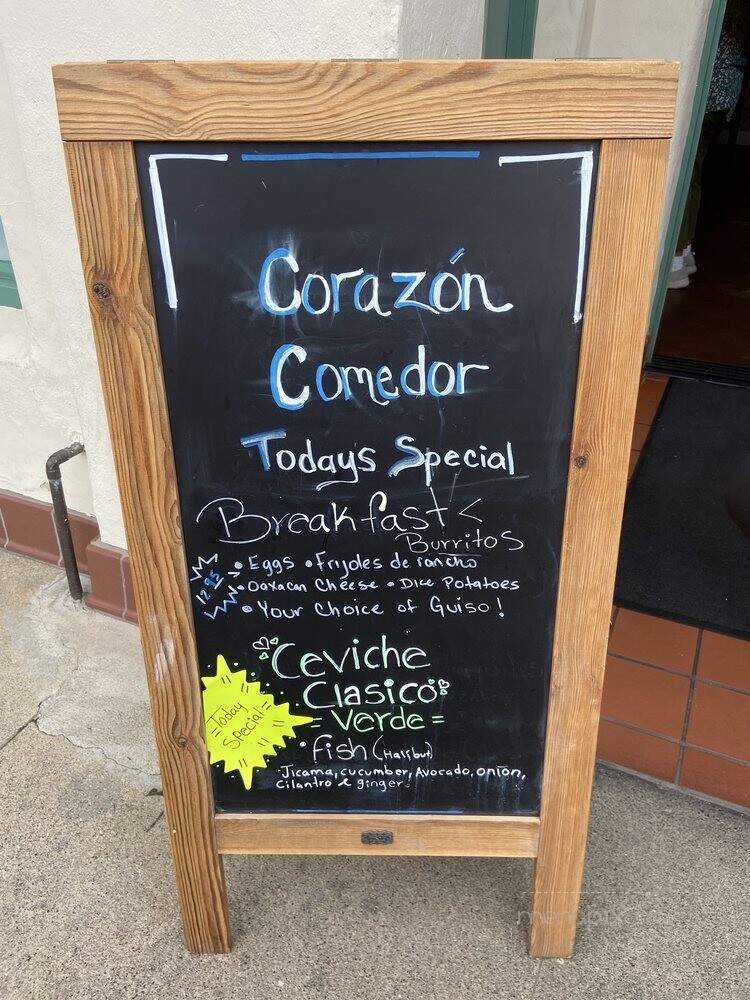 Corazón
Comedor
Todays Special
Breakfast <
Burritos
12.95
• Eggs • Frijoles de rancho
• Oaxacan Cheese • Dice Potatoes
• Your Choice of Guiso!
Ceviche
Clasico
= Verde =
= Today
Special =
• fish (Halibut)
Jicama, cucumber, Avocado, onion,
Cilantro & ginger